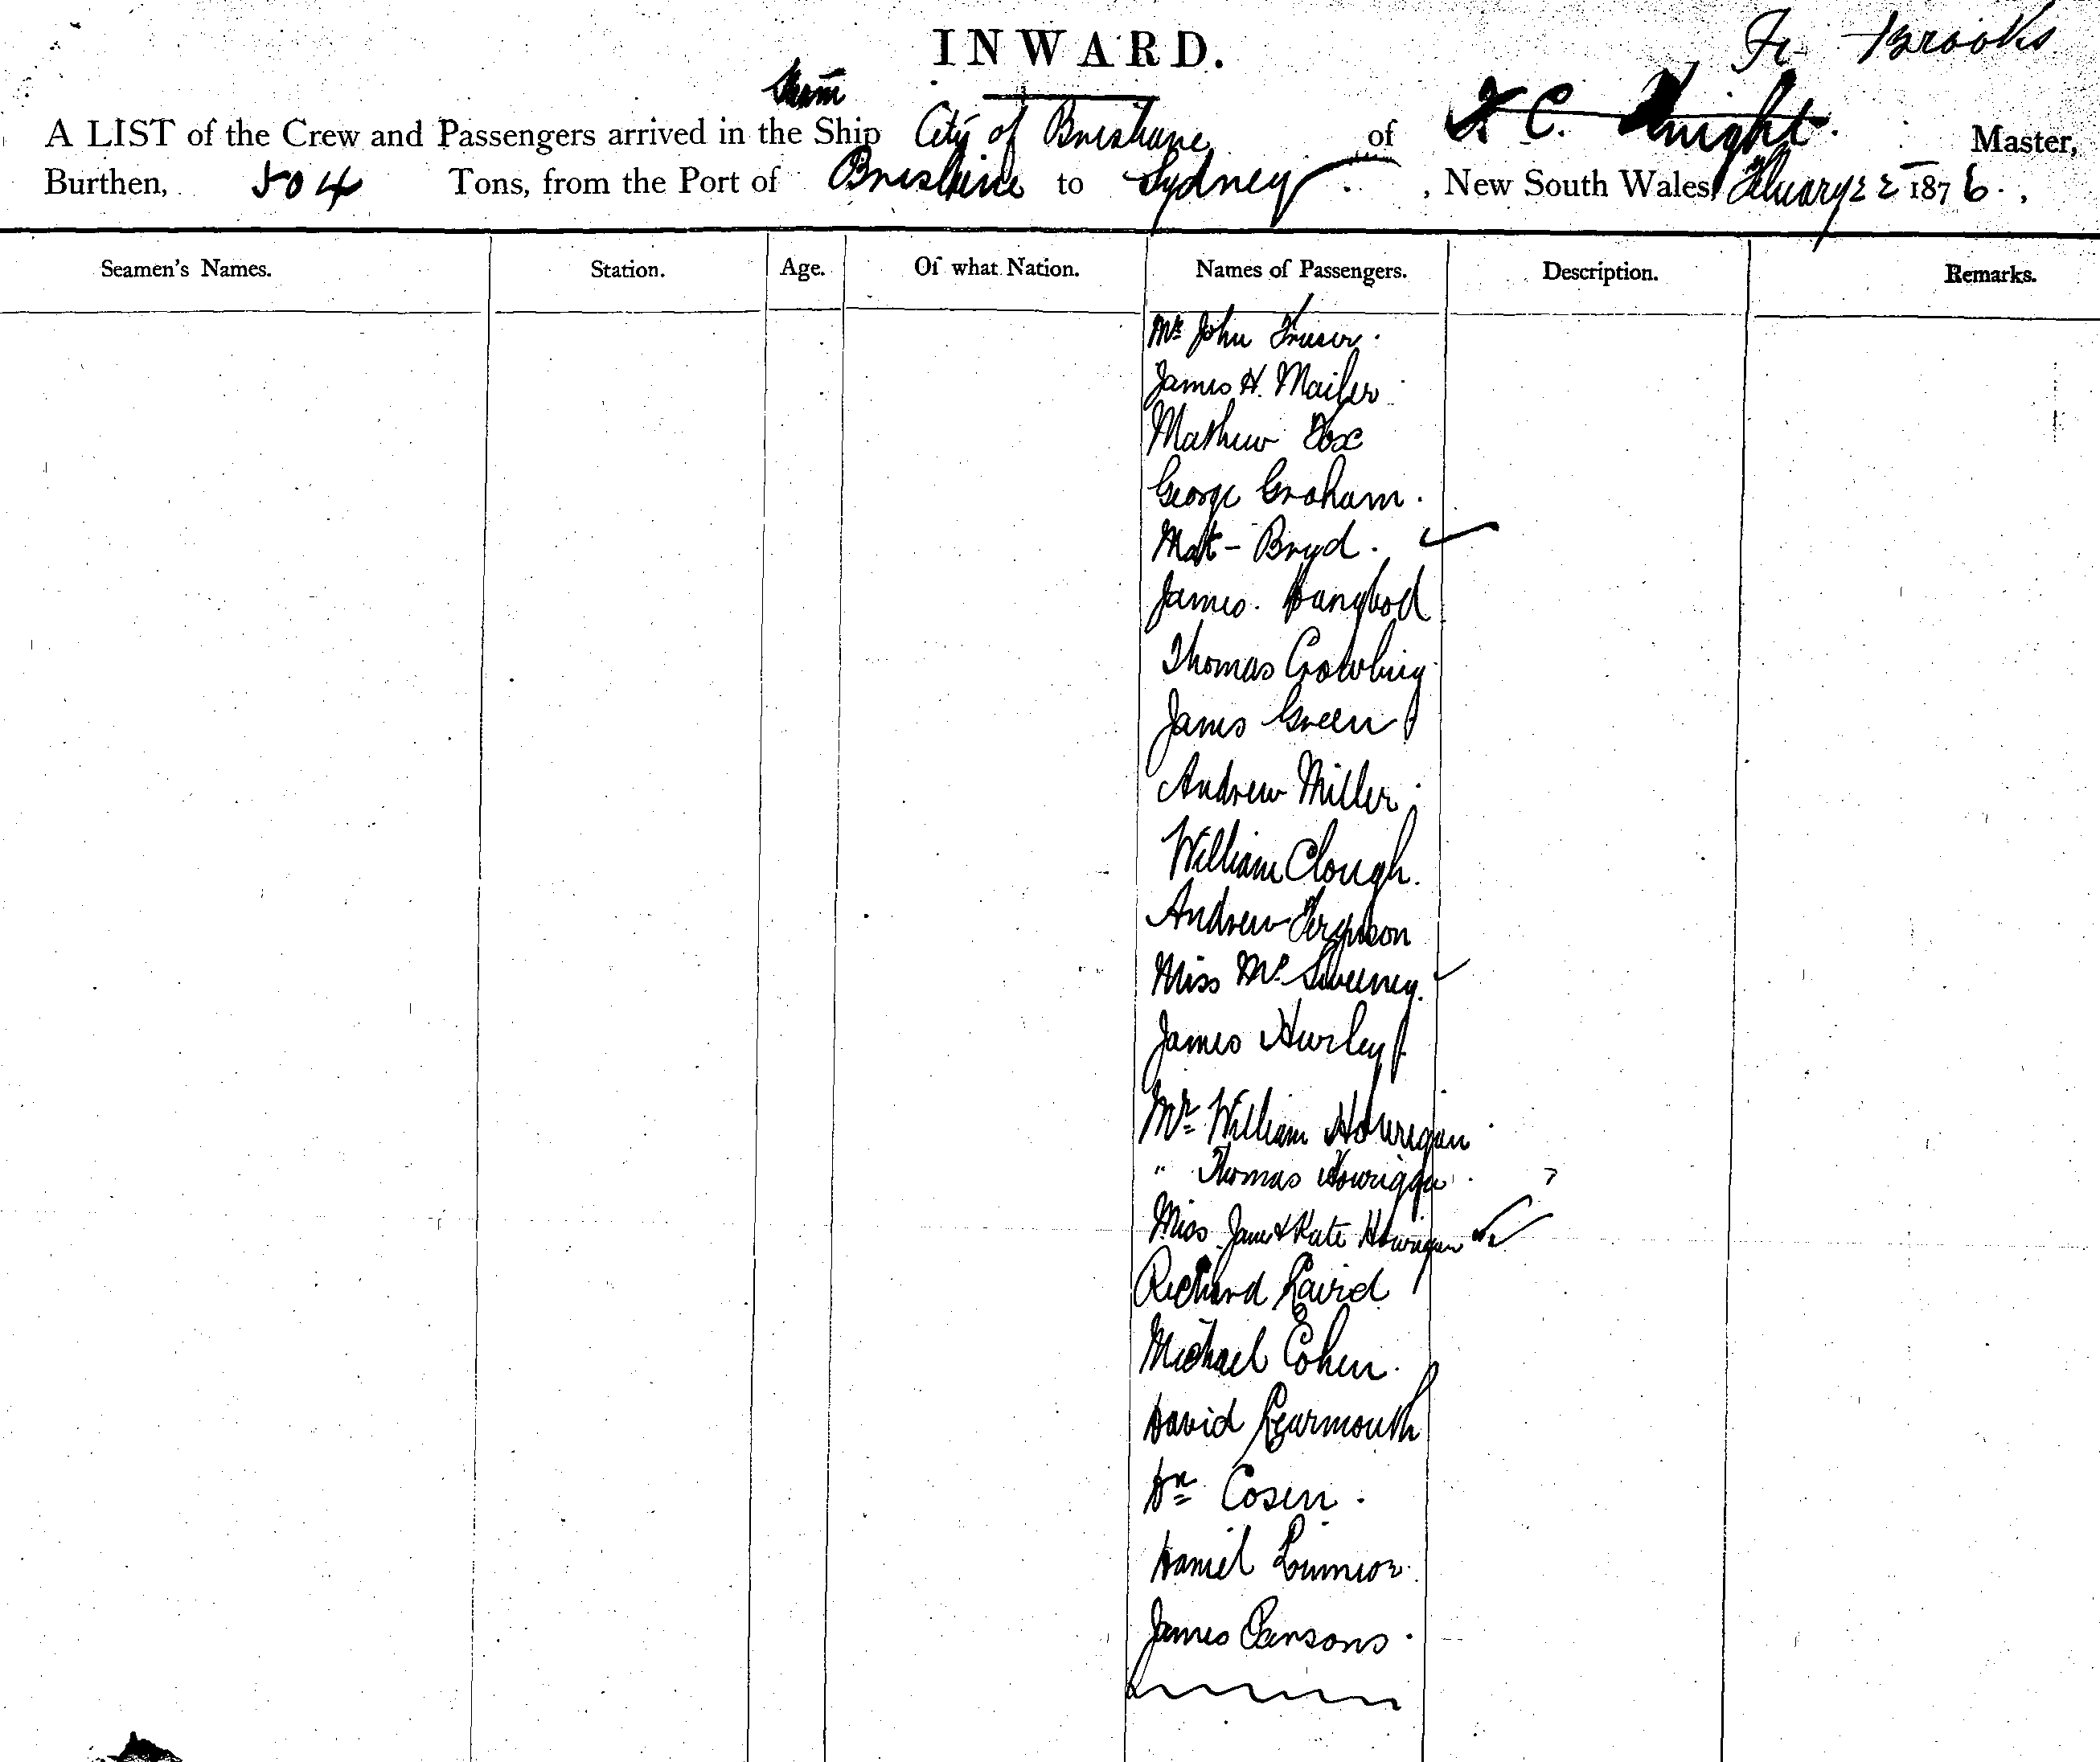 INWARD.
Fr Brooks
Steam
A LIST of the Crew and Passengers arrived in the Ship City of Brisbane of F. C. Knight. Master,
Burthen, 504 Tons, from the Port of Brisbane to Sydney , New South Wales, February 22 1876.
Seamen's Names. Station. Age. Of what Nation. Names of Passengers. Description. Remarks.
Mr John Fraser.
James H. Mailer
Mathew Fox
George Graham.
Mat - Bryd.
James.
Thomas Cowling
James Green
Andrew Miller
William Clough.
Andrew Ferguson
Miss Mc Sweeney.
James Hurley
Mr William Howrigan
" Thomas Howrigan
Miss Jane & Kate Howrigan
Richard Laird
Michael Cohen.
David Learmouth
Dr Cosen.
Daniel
James Parsons.